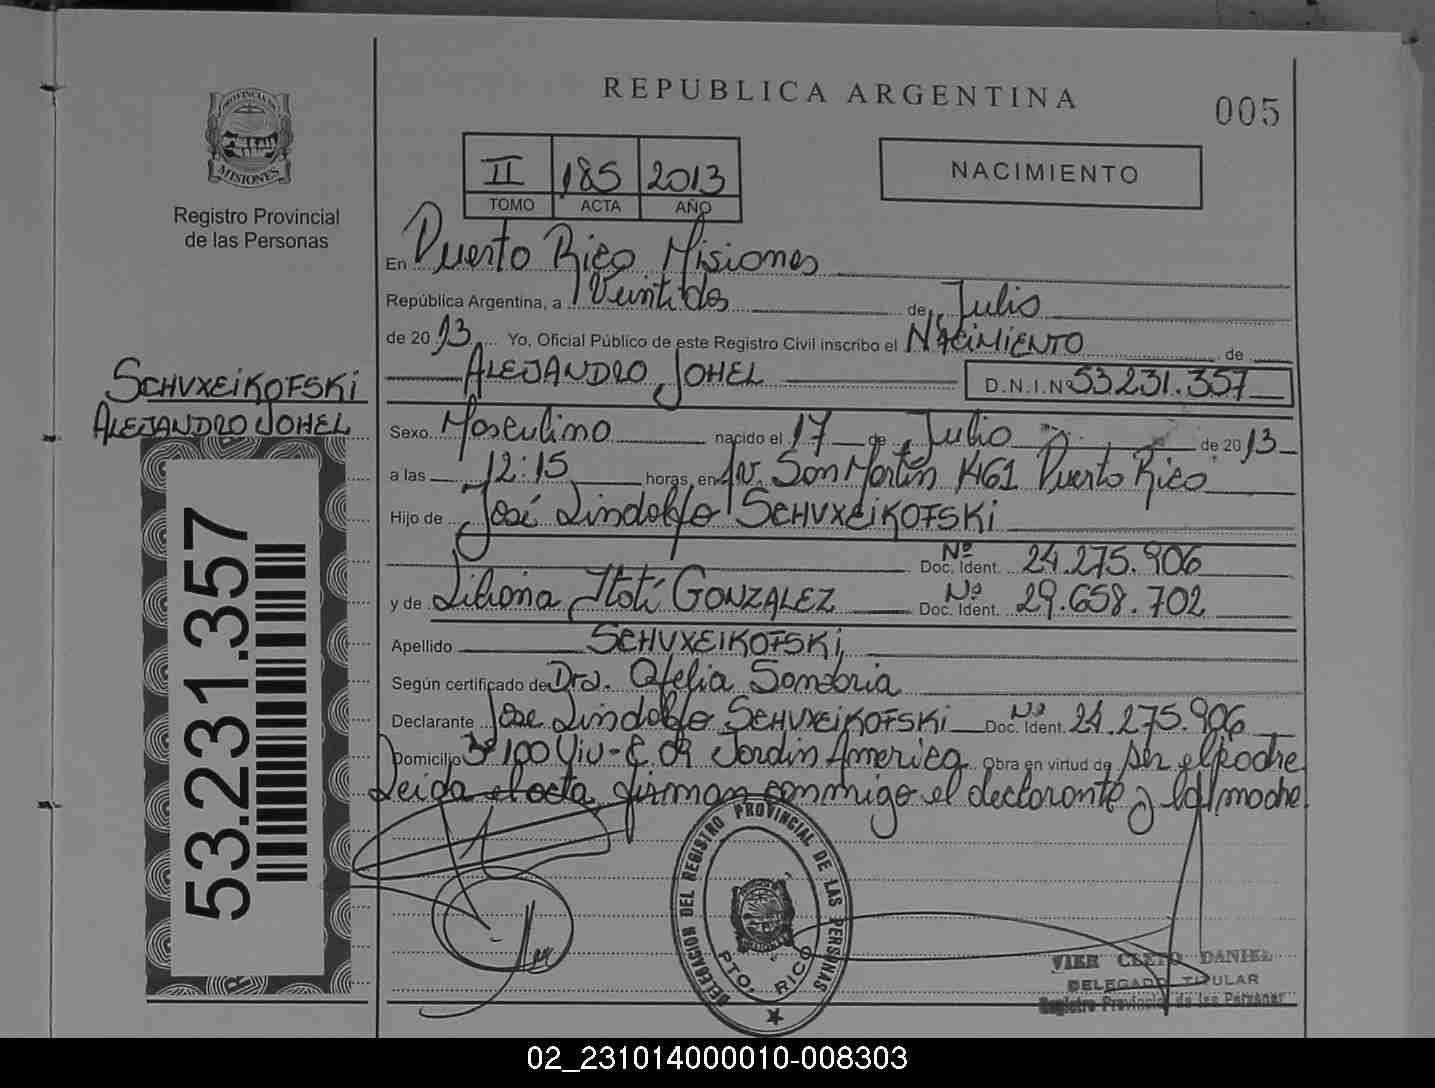 REPUBLICA ARGENTINA
005
PROVINCIA DE
MISIONES
Registro Provincial
de las Personas
II 185 2013
TOMO ACTA AÑO
NACIMIENTO
En Puerto Rico Misiones
República Argentina, a Veintidos de Julio
de 2013 Yo, Oficial Público de este Registro Civil inscribo el NACIMIENTO de
SCHVXEIKOFSKI
ALEJANDRO JOHEL
ALEJANDRO JOHEL D.N.I. Nº 53.231.357
Sexo Masculino nacido el 17 de Julio de 2013
a las 12:15 horas, en Av. San Martín 1461 Puerto Rico
Hijo de José Lindolfo SCHVXEIKOFSKI
Nº
Doc. Ident. 24.275.906
y de Liliana Itatí GONZALEZ Nº Doc. Ident. 29.658.702
Apellido SCHVXEIKOFSKI
Según certificado de Dra. Ofelia Sanabria
Declarante José Lindolfo SCHVXEIKOFSKI Nº Doc. Ident. 24.275.906
Domicilio Bº 100 Viv- C. 09 Jardin America Obra en virtud de ser el padre
Leida el acta firman conmigo el declarante y la madre
53.231.357
DELEGACION DEL REGISTRO PROVINCIAL DE LAS PERSONAS
PTO. RICO
VIER CLETO DANIEL
DELEGADO TITULAR
Registro Provincial de las Personas
02_231014000010-008303